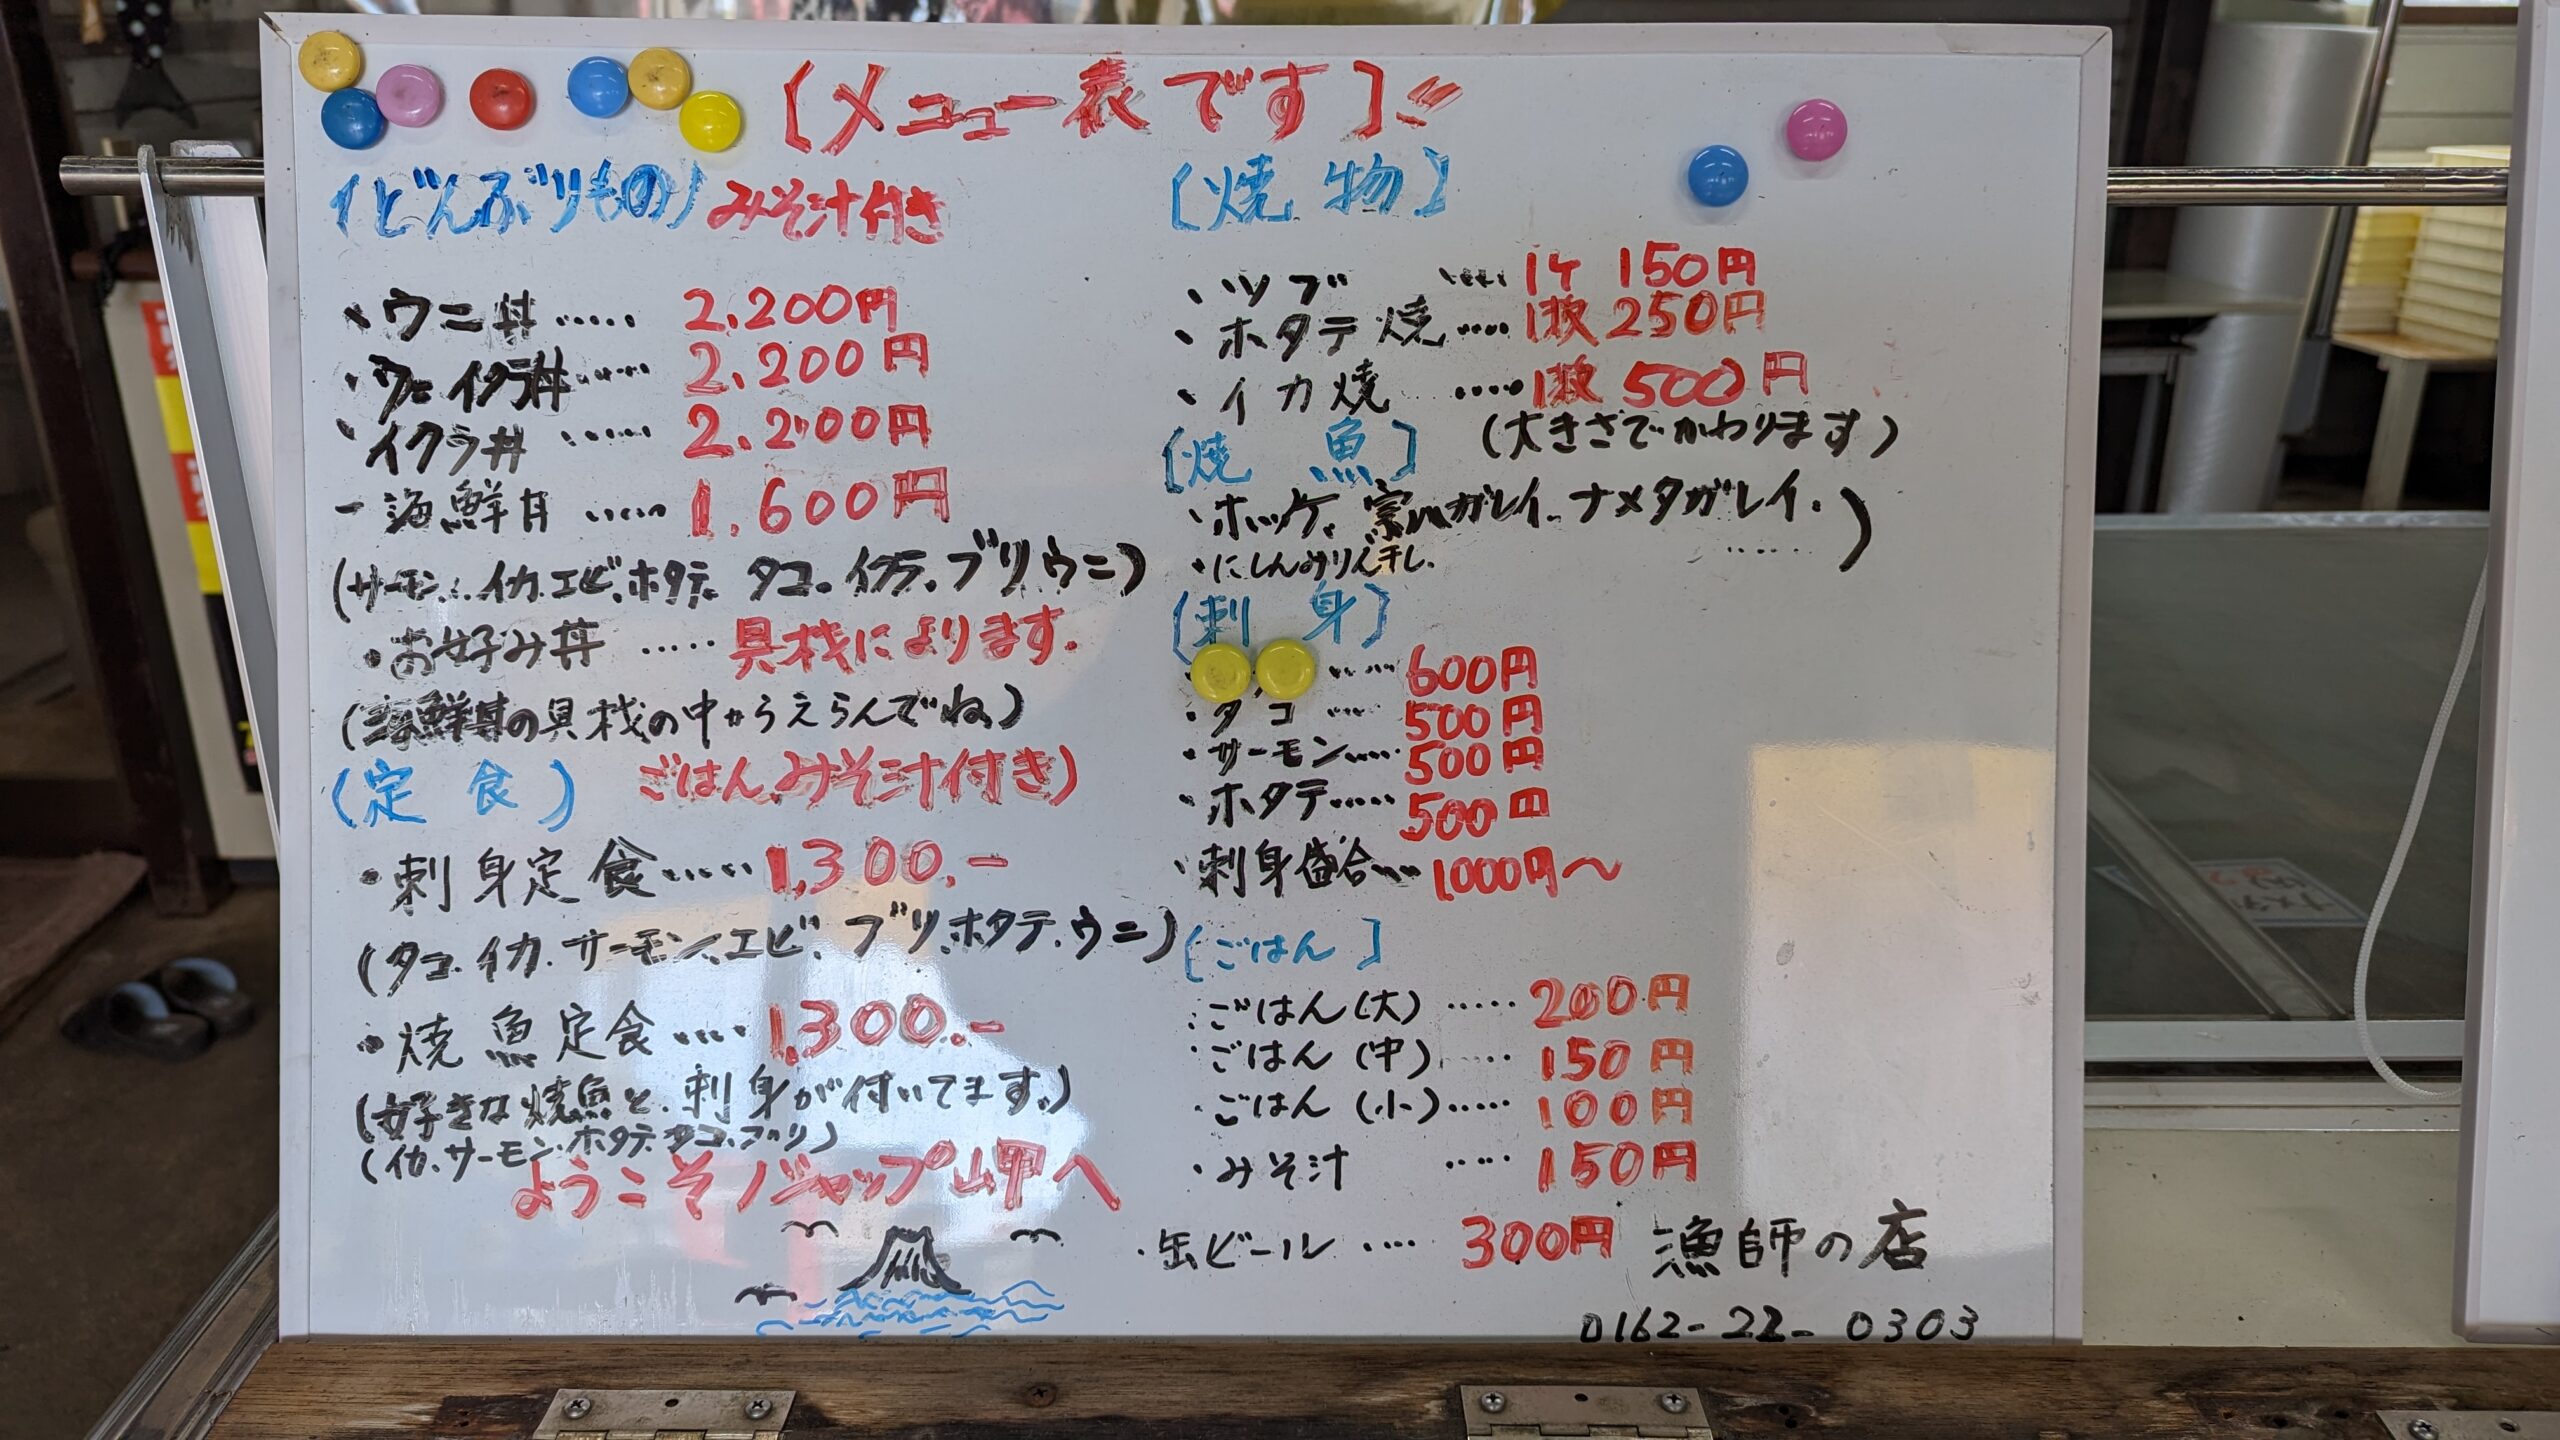 〔メニュー表です〕!!
(どんぶりもの) みそ汁付き
・ウニ丼 ..... 2,200円
・ウニイクラ丼 ...... 2,200円
・イクラ丼 ...... 2,200円
-海鮮丼 ...... 1,600円
(サーモン、イカ、エビ、ホタテ、タコ、イクラ、ブリ、ウニ)
・お好み丼 ..... 具材によります.
(海鮮丼の具材の中からえらんでね)
(定食) ごはん、みそ汁付き)
・刺身定食..... 1,300.-
(タコ、イカ、サーモン、エビ、ブリ、ホタテ、ウニ)
・焼魚定食..... 1,300.-
(好きな焼魚と、刺身が付いてます。)
(イカ、サーモン、ホタテ、タコ、ブリ)
ようこそノシャップ岬へ
〔焼物〕
・ツブ ..... 1ケ 150円
・ホタテ焼 ..... 1枚 250円
・イカ焼 ..... 1枚 500円
(大きさでかわります)
〔焼魚〕
・ホッケ、宗八ガレイ、ナメタガレイ.
・にしんみりん干し. ......)
〔刺身〕
..... 600円
・タコ .... 500円
・サーモン..... 500円
・ホタテ..... 500円
・刺身盛合.... 1000円〜
〔ごはん〕
・ごはん(大) ..... 200円
・ごはん(中) ..... 150円
・ごはん(小)..... 100円
・みそ汁 ..... 150円
・缶ビール .... 300円
漁師の店
0162-22-0303